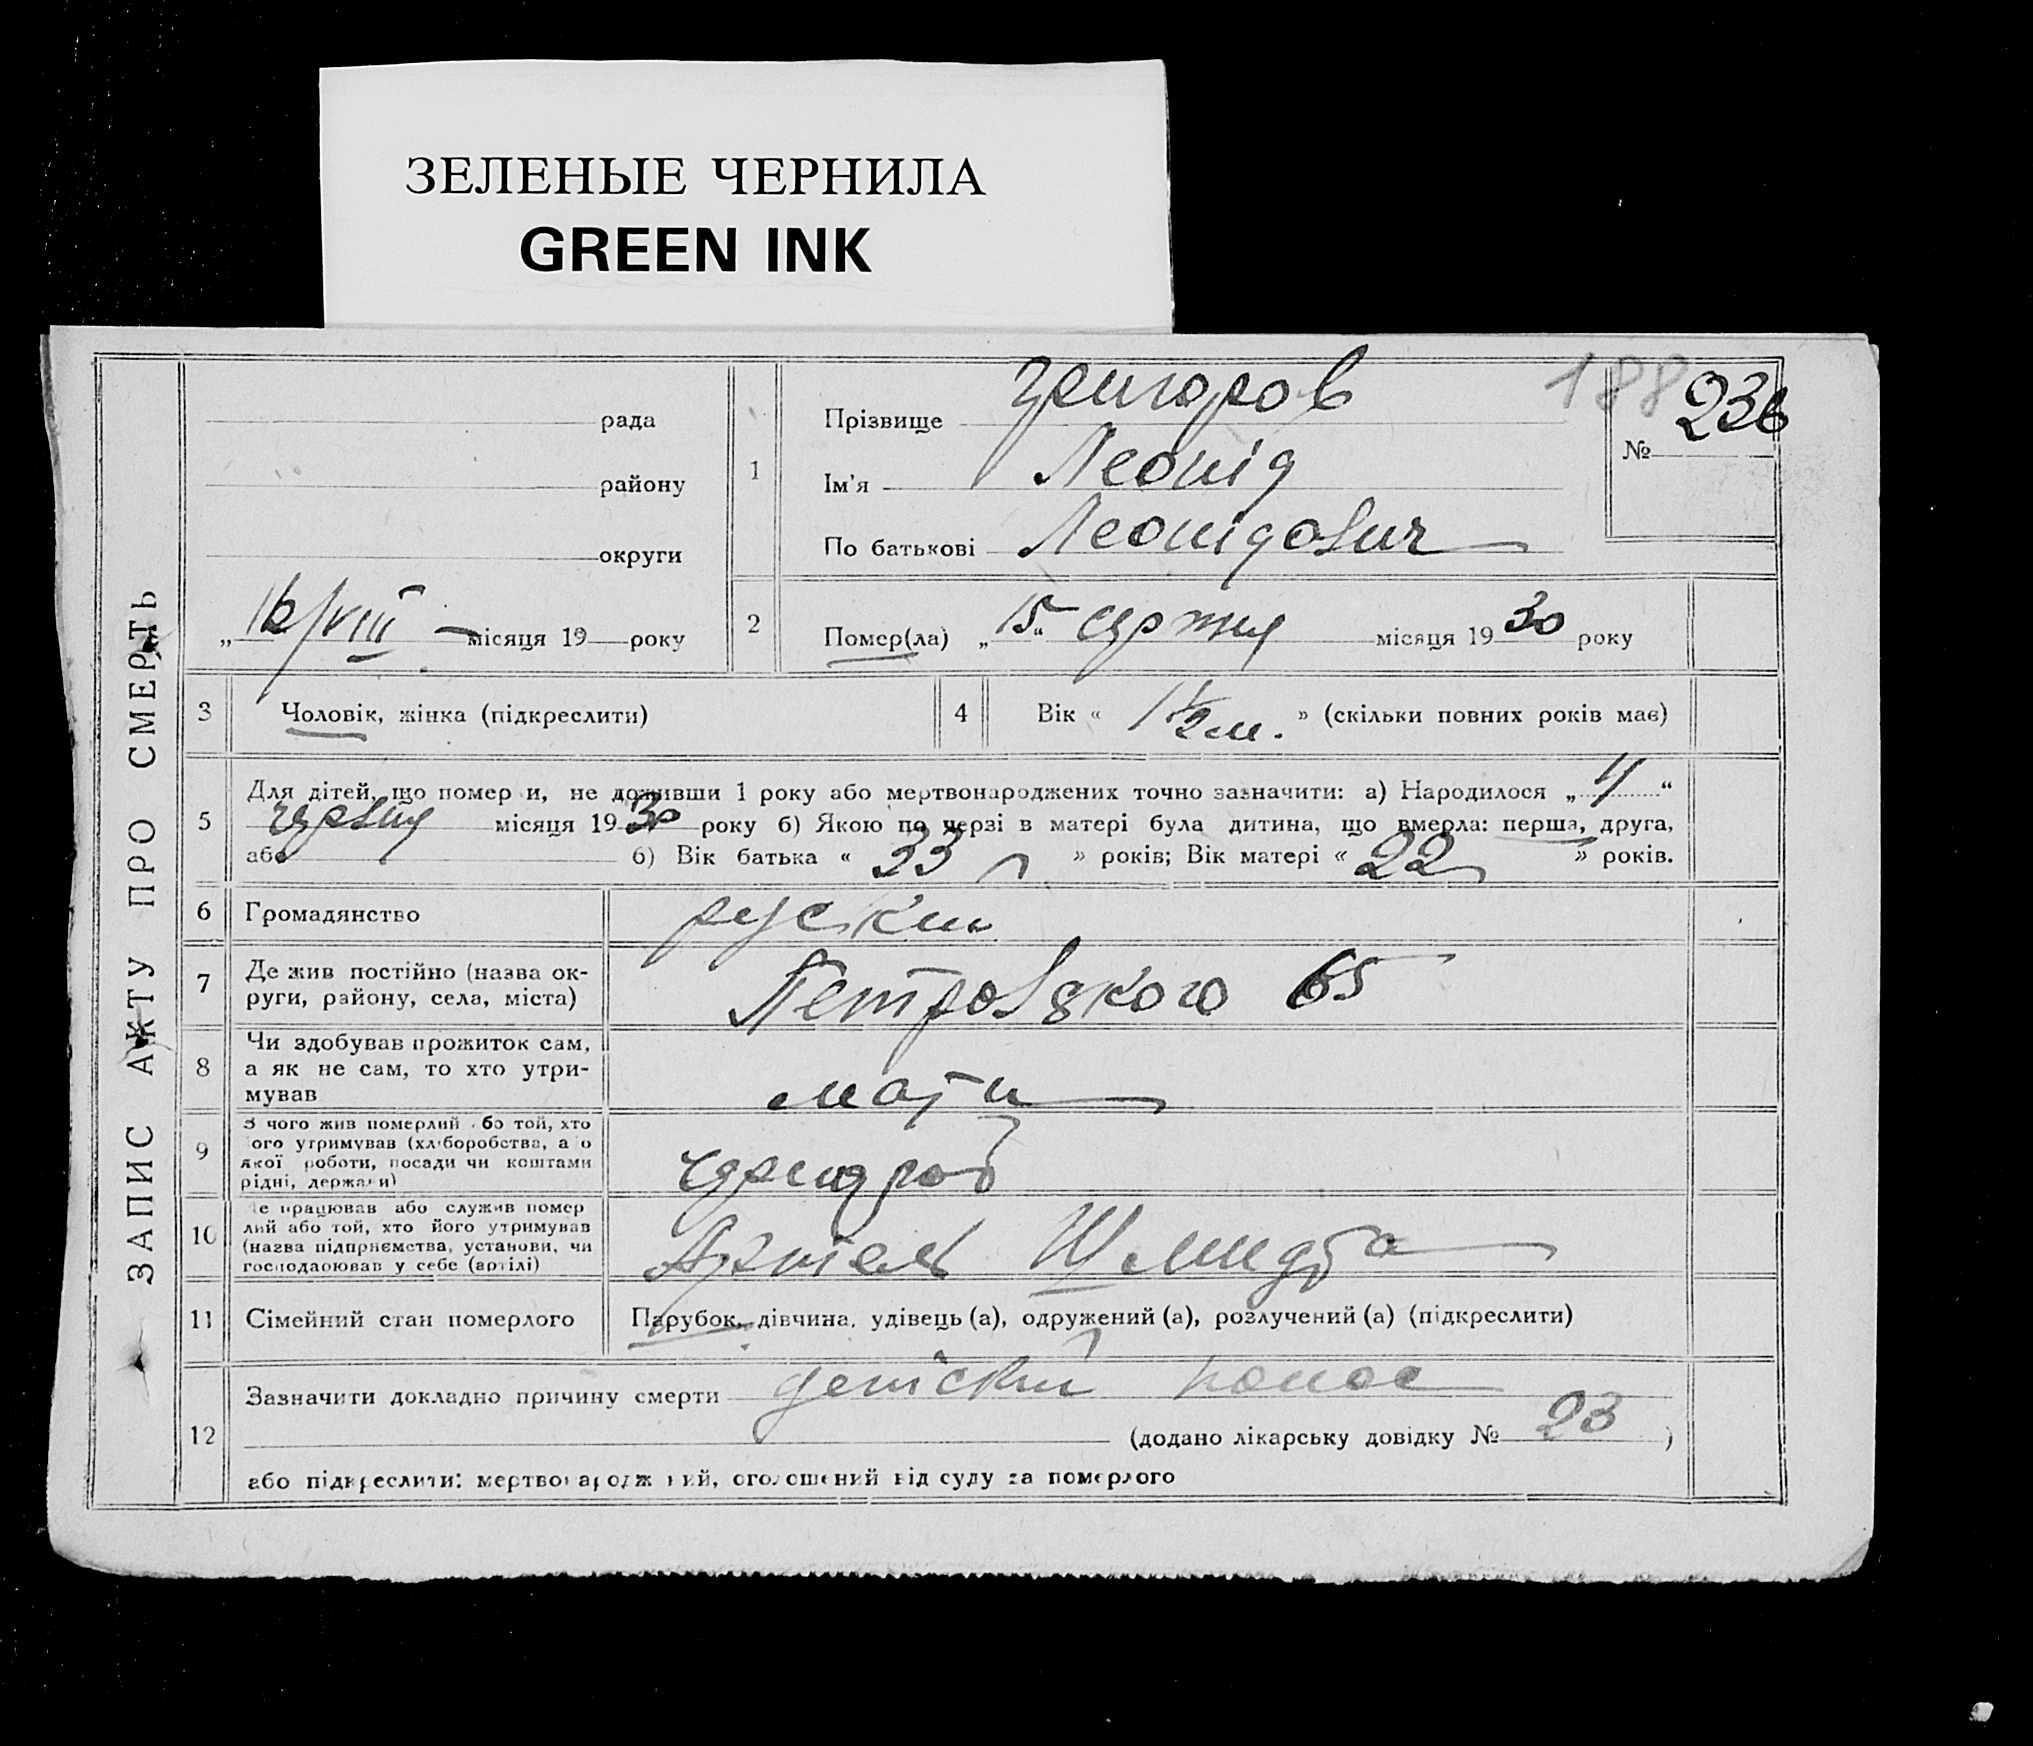 ЗЕЛЕНЫЕ ЧЕРНИЛА
GREEN INK
ЗАПИС АКТУ ПРО СМЕРТЬ
рада
району
округи
„16/VIII місяця 19 року
188
№ 236
1
Прізвище Григоров
Ім'я Леонід
По батькові Леонідович
2
Помер(ла) „15“ серпня місяця 1930 року
3
Чоловік, жінка (підкреслити)
4
Вік « 1 1/2 м. » (скільки повних років має)
5
Для дітей, що померли, не доживши 1 року або мертвонароджених точно зазначити: а) Народилося „4“
червня місяця 1930 року б) Якою по черзі в матері була дитина, що вмерла: перша, друга,
або б) Вік батька « 33 » років; Вік матері « 22 » років.
6
Громадянство
руский
7
Де жив постійно (назва ок-
руги, району, села, міста)
Петровского 65
8
Чи здобував прожиток сам,
а як не сам, то хто утри-
мував
мати
9
З чого жив померлий або той, хто
його утримував (хліборобства, або
якої роботи, посади чи коштами
рідні, держави)
10
Де працював або служив помер
лий або той, хто його утримував
(назва підприємства, установи, чи
господарював у себе (артілі)
Артель Шмидта
11
Сімейний стан померлого
Парубок, дівчина, удівець (а), одружений (а), розлучений (а) (підкреслити)
12
Зазначити докладно причину смерти детский понос
(додано лікарську довідку № 23 )
або підкреслити: мертвонароджений, оголошений від суду за померлого